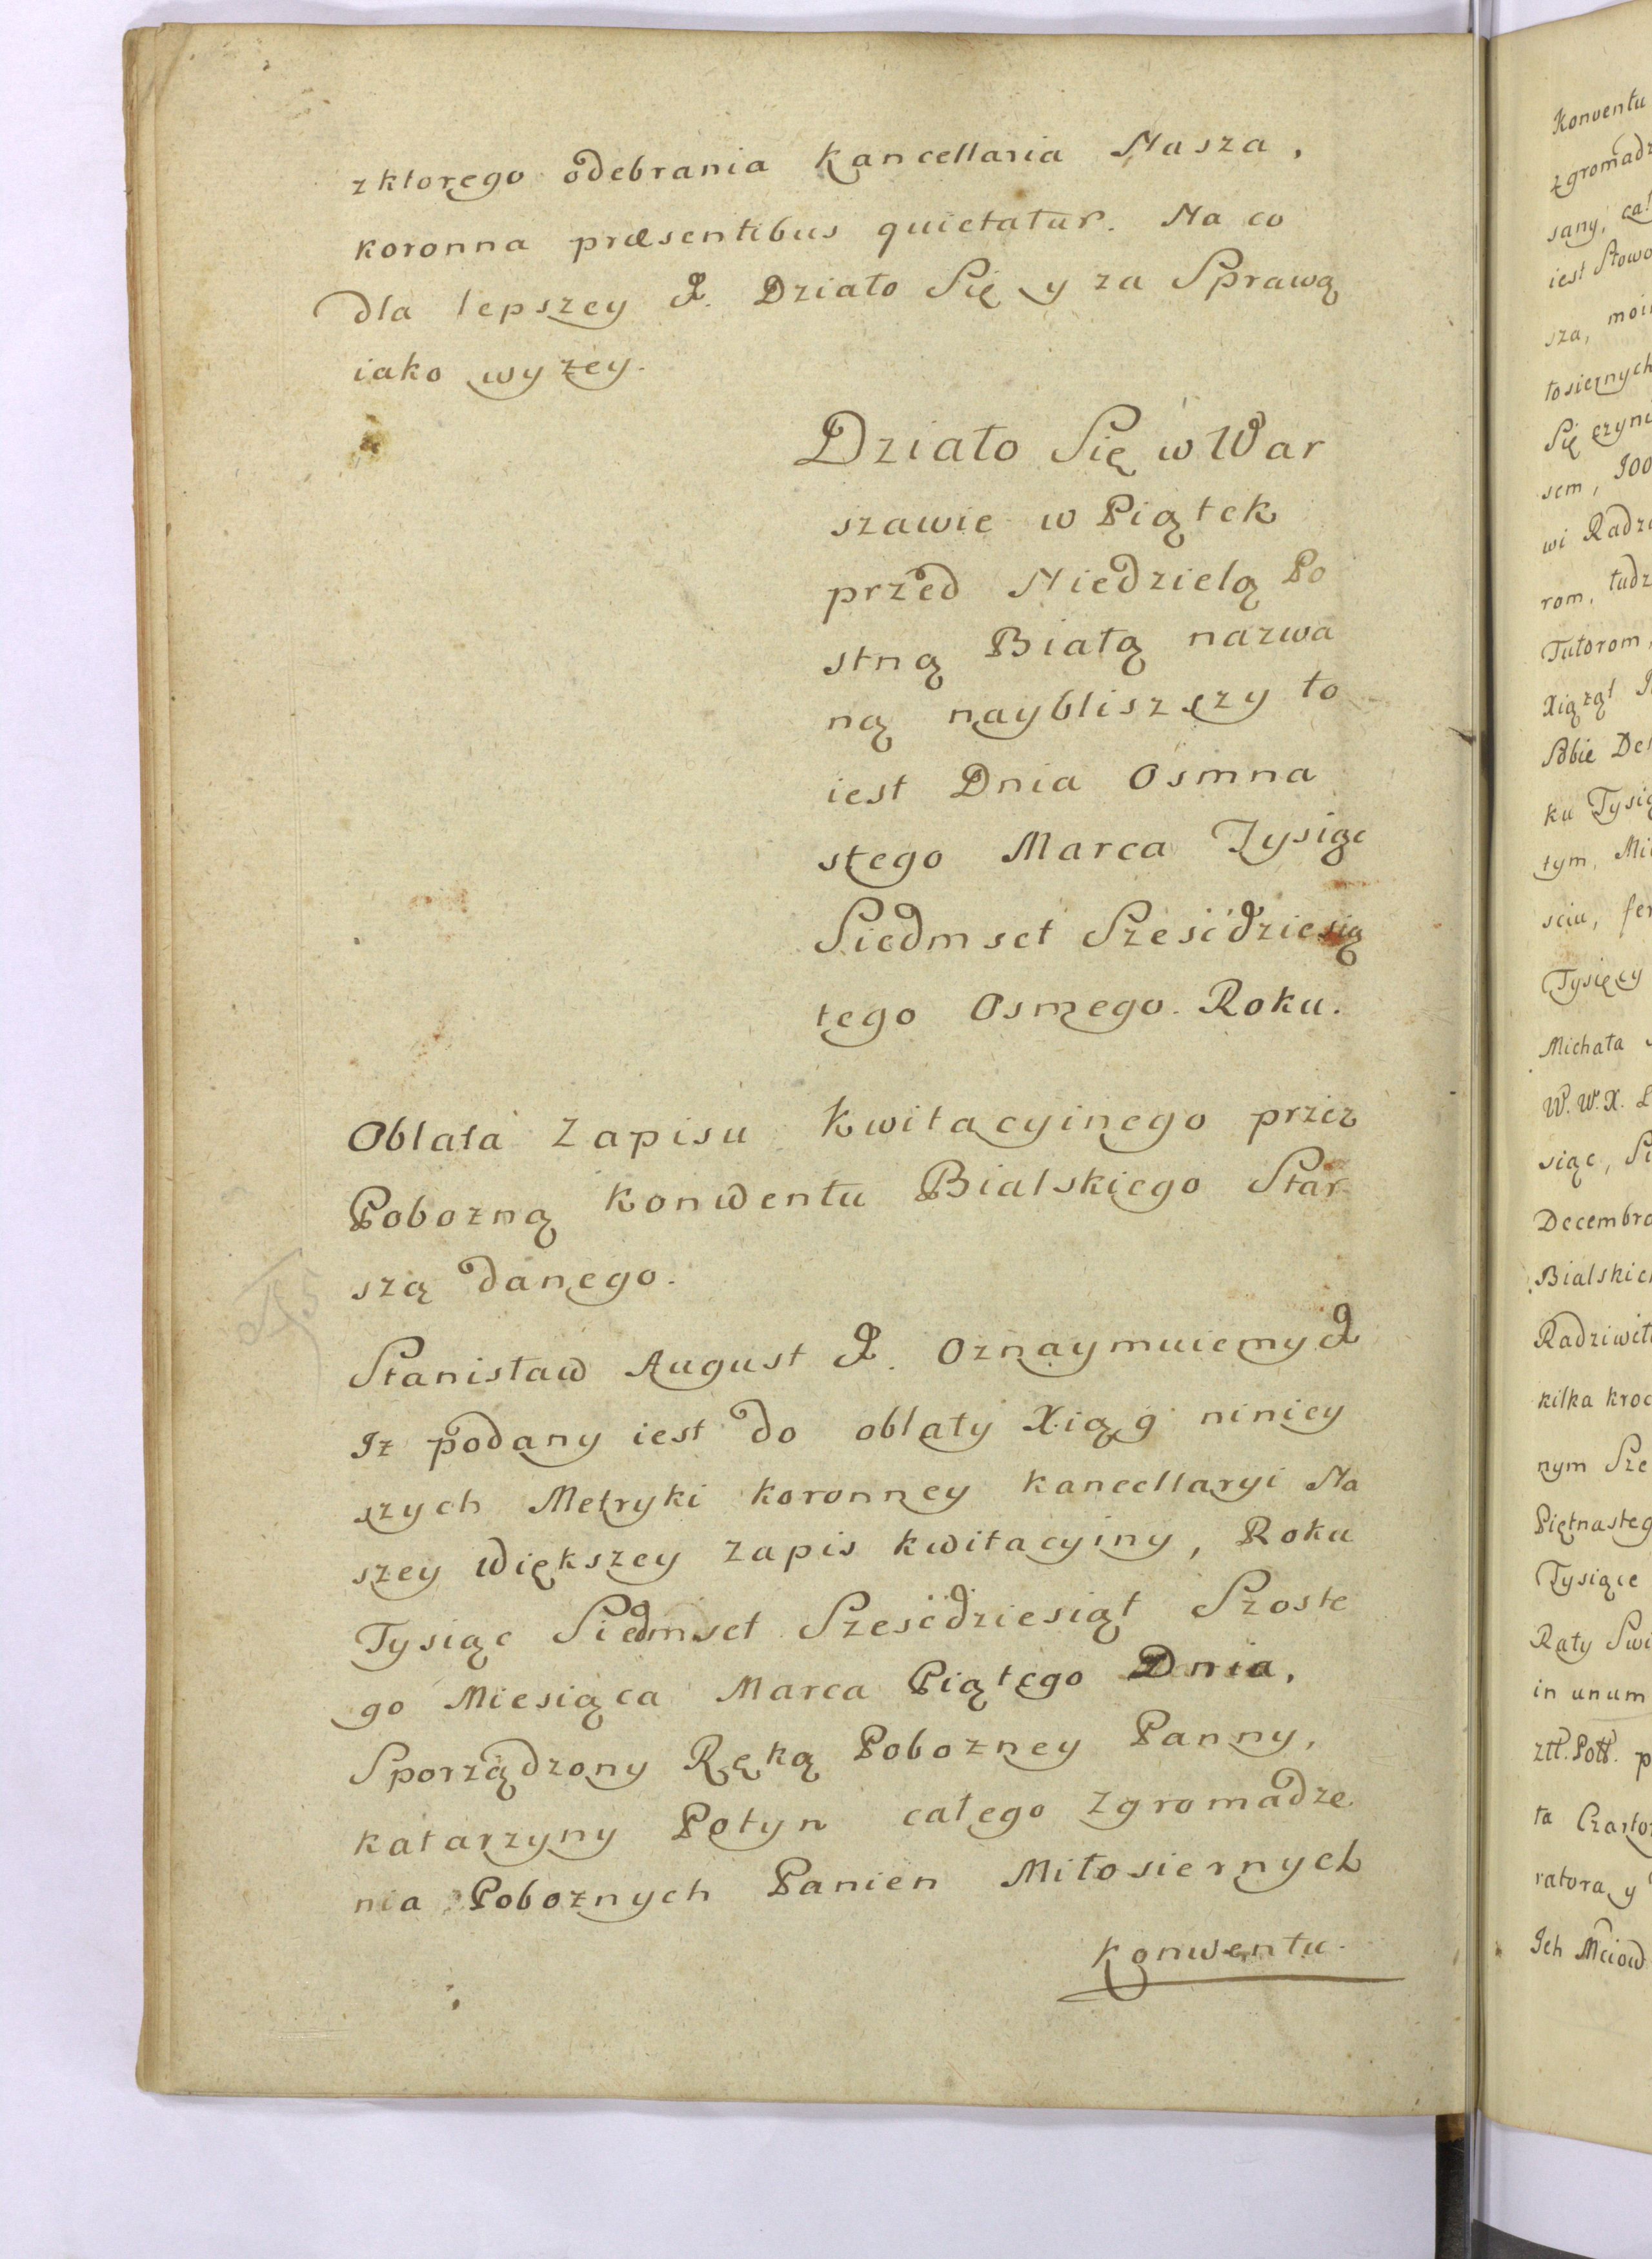 z ktorego odebrania Kancellaria Nasza,
koronna præsentibus quietatur. Na co
dla lepszey &. Działo Się y za Sprawą
iako wyzey.
Działo Się w War
szawie w Piątek
przed Niedzielą Po
stną Białą nazwa
ną naybliszszy to
iest Dnia Osmna
stego Marca Tysiąc
Siedmset Sześćdziesią
tego Osmego Roku.
Oblata Zapisu Kwitacyinego przez
Pobozną Konwentu Bialskiego Star
szą danego.
Stanisław August &. Oznaymuiemy &
Iż podany iest do oblaty Xiąg niniey
szych Metryki koronney kancellaryi Na
szey Większey Zapis kwitacyiny, Roku
Tysiąc Siedmset Sześćdziesiąt Szoste
go Miesiąca Marca Piątego Dnia,
Sporządzony Ręką Pobozney Panny,
Katarzyny Potyn całego Zgromadze
nia Poboznych Panien Miłosiernych
Konwentu.
Konventu
zgromadz
sany, cał
iest Słowo
sza, moi
łosiernych
Się czyni
sem, JOO
wi Radzi
rom, tudz
Tutorom,
Xiążąt
Sobie De
ku Tysią
tym, Mi
sciu, fer
Tysięcy
Michała
W. W. X. L
siąc, Si
Decembra
Bialskie
Radziwiłł
kilka kroć
nym Sze
Piętnasteg
Tysiące
Raty Swi
in unum
ztt. Poll. p
ta Czarto
ratora y
Ich Mciow